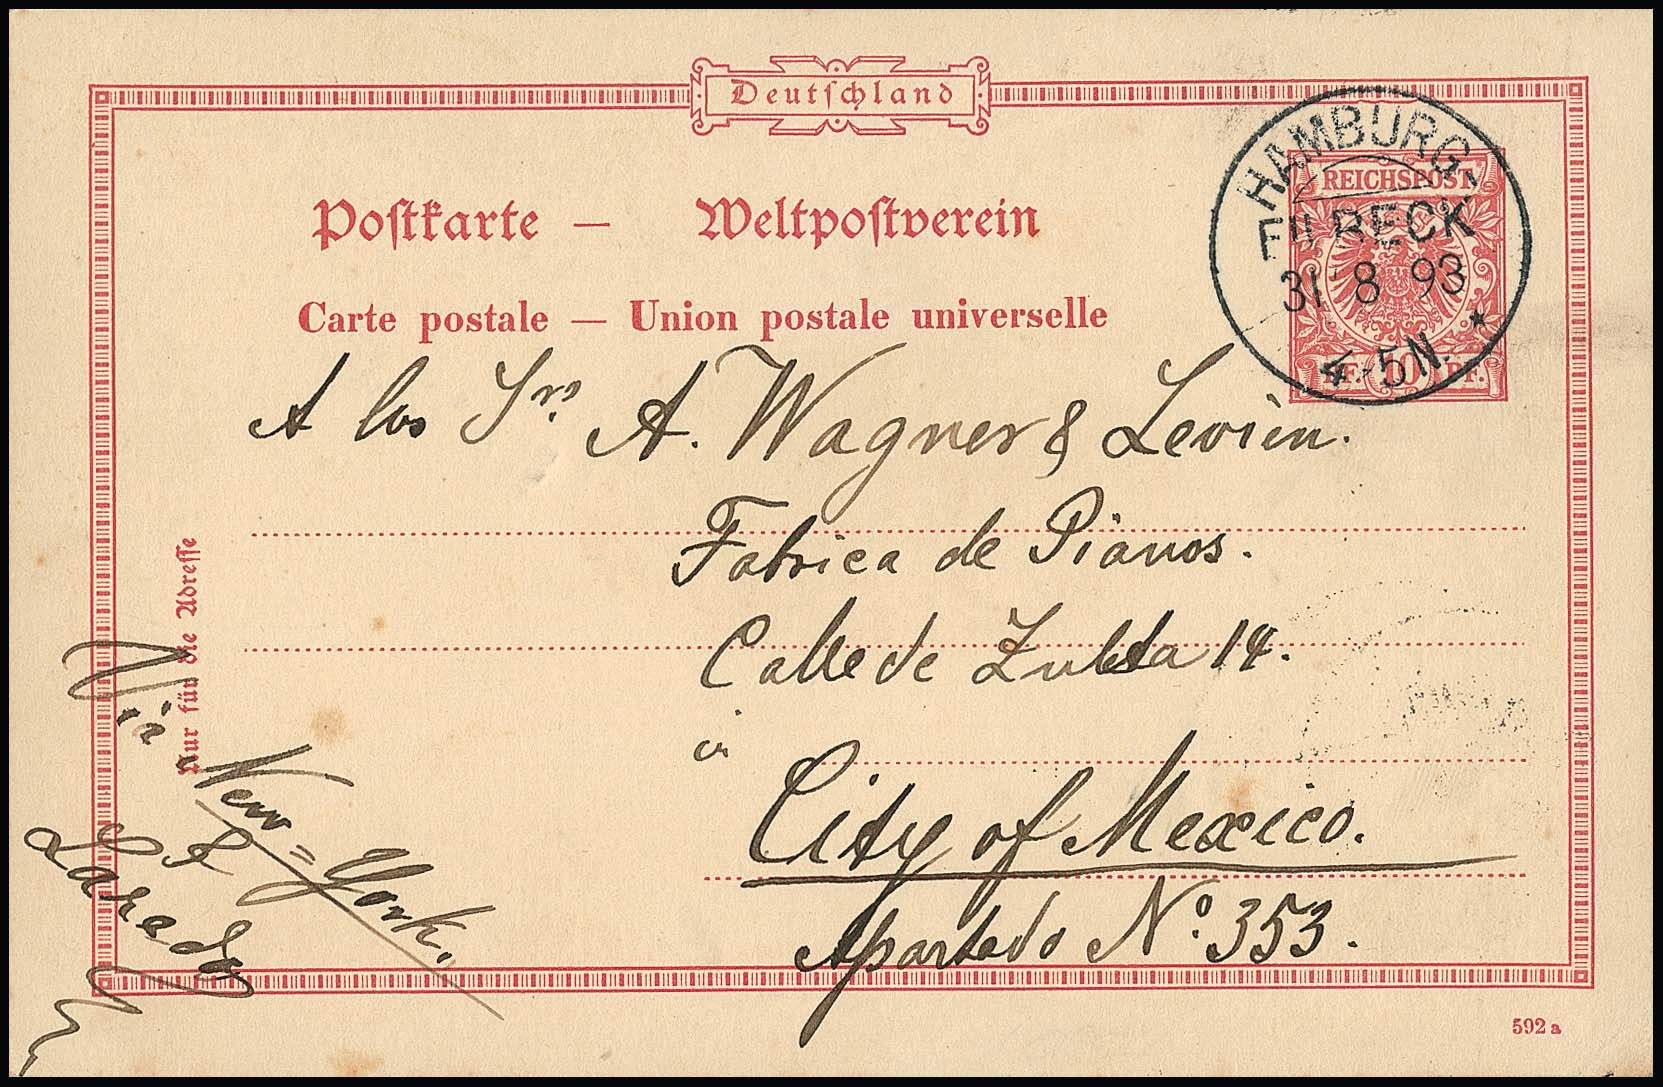 Deutschland
Postkarte — Weltpostverein
Carte postale — Union postale universelle
HAMBURG,
EILBECK
31 8 93
4-5N.
REICHSPOST
PF. 10 PF.
A los Srs A. Wagner & Levien.
Fabrica de Pianos.
Calle de Zuleta 14.
in
City of Mexico.
Apartado No. 353.
Nur für die Adresse
Via New=York.
&
Laredo
592 a